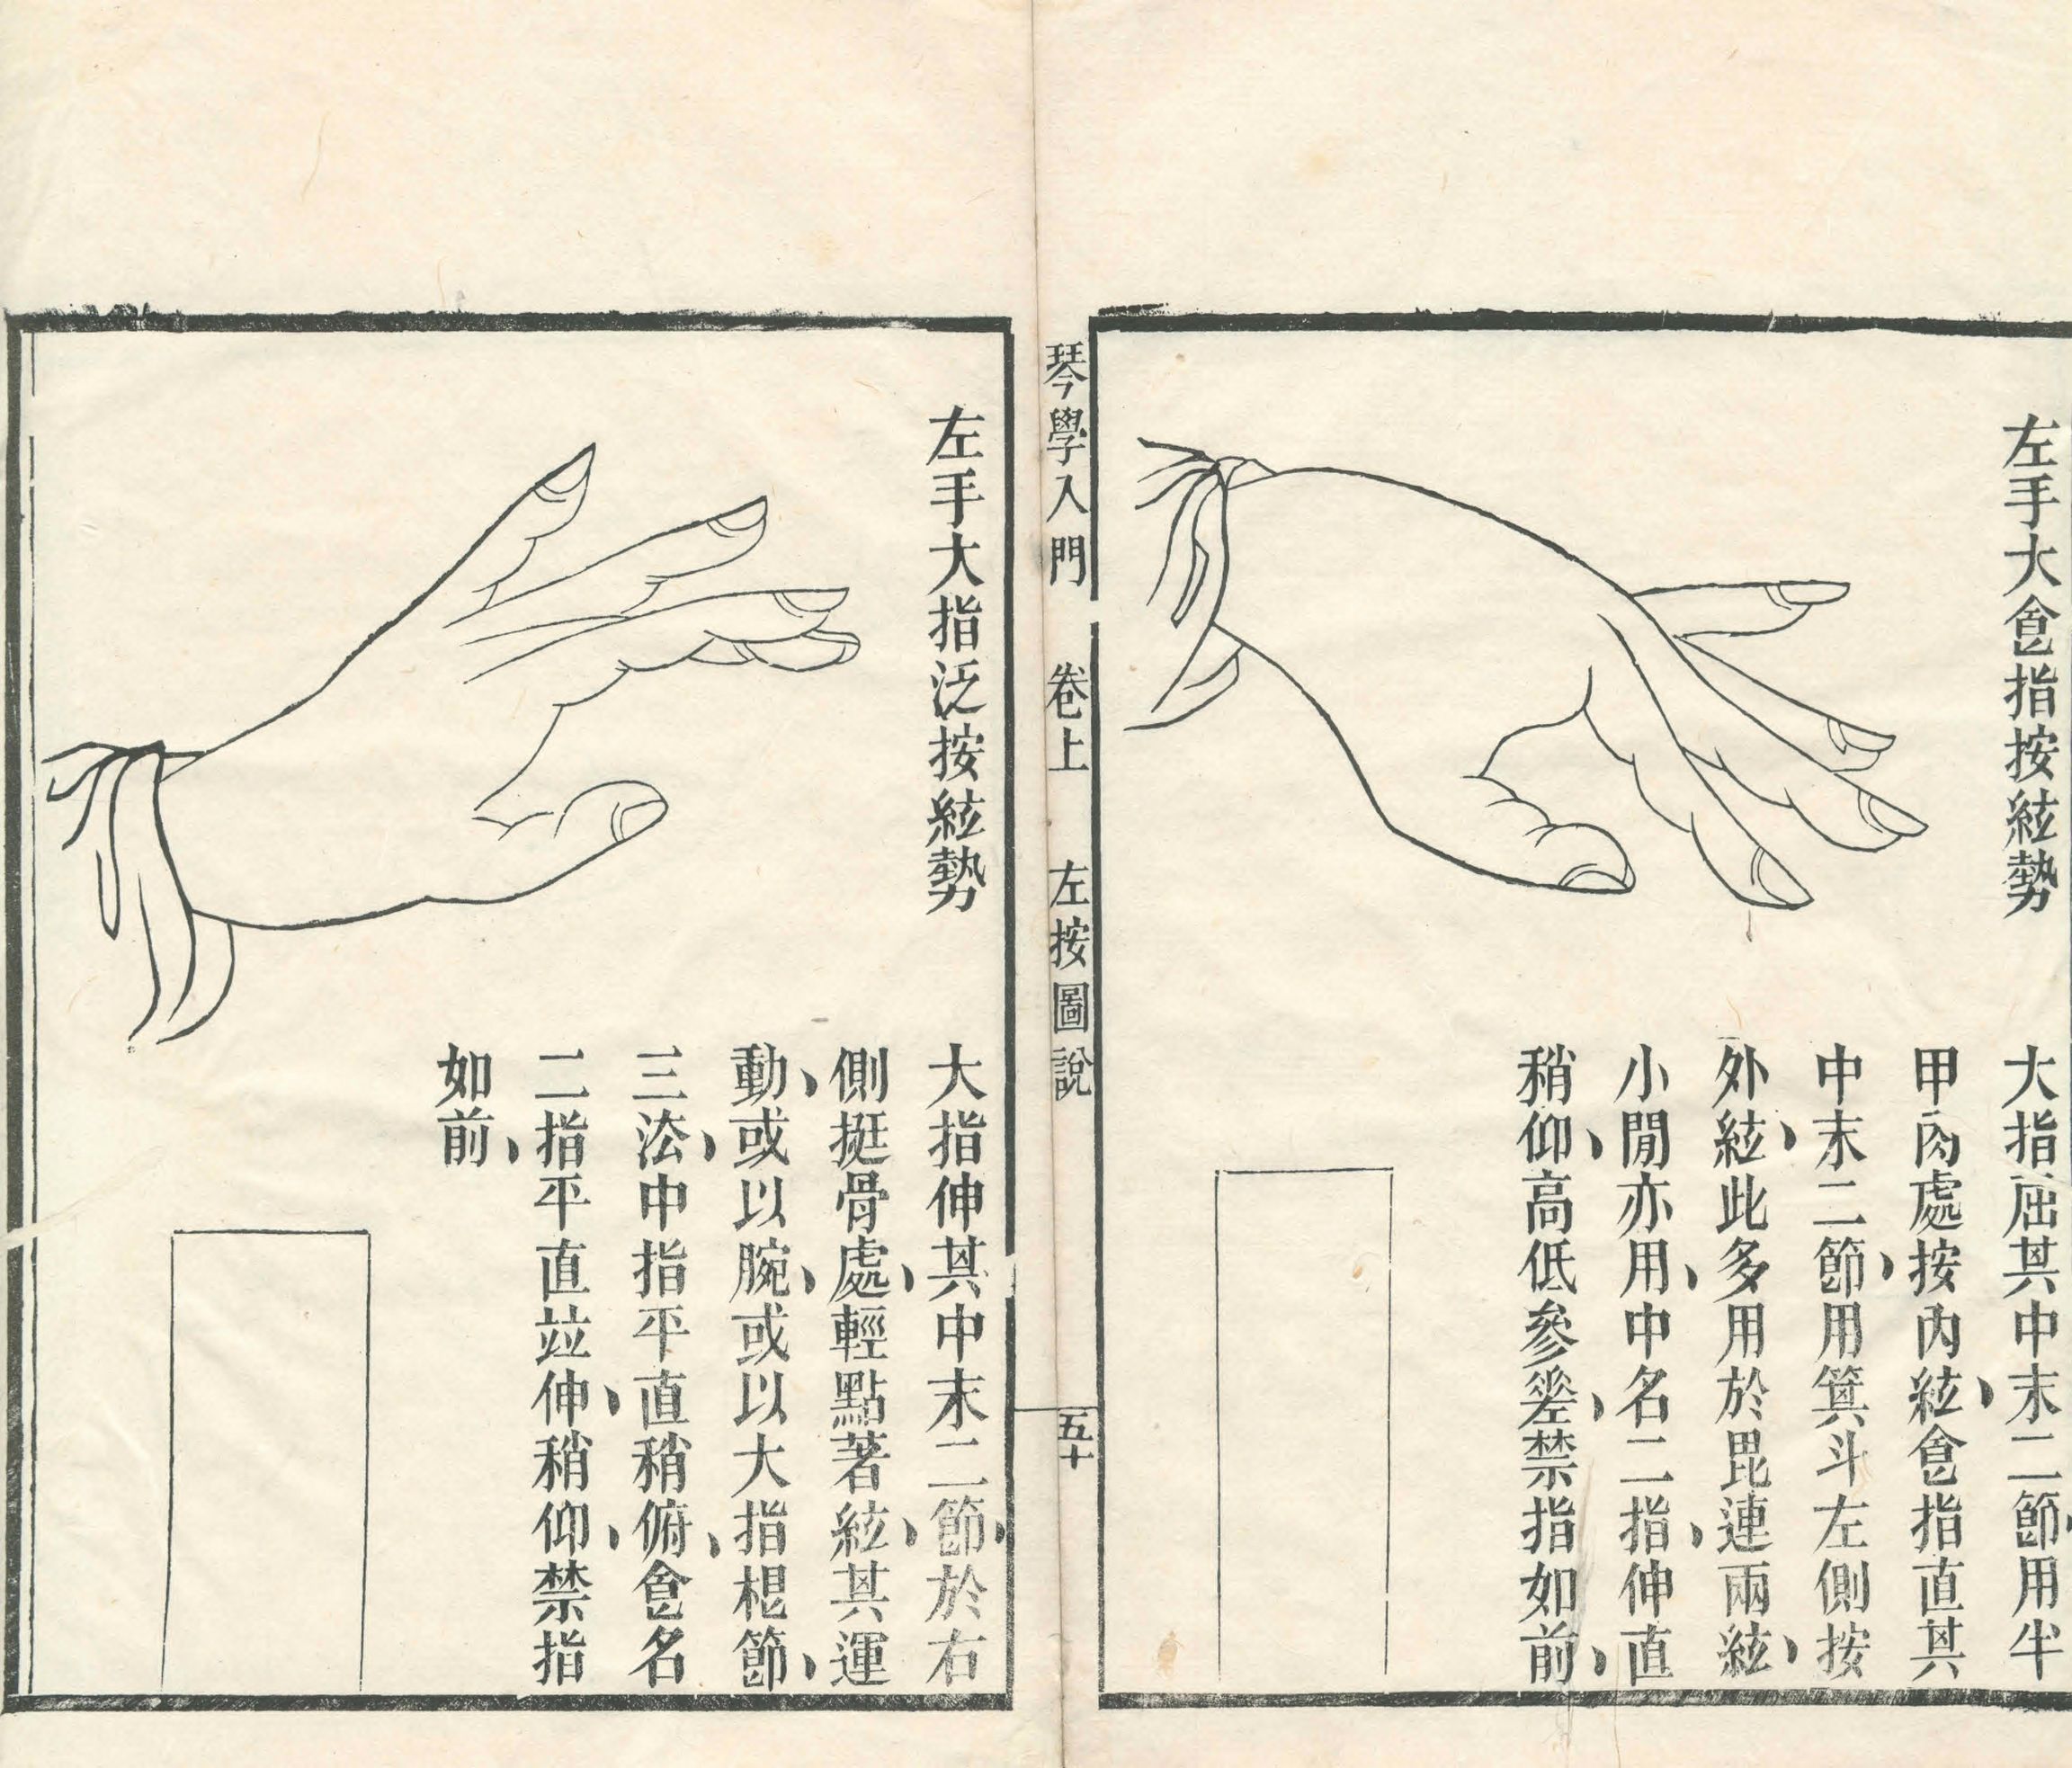 左手大食指按絃勢
大指屈其中末二節用半
甲肉處按內絃食指直其
中末二節用箕斗左側按
外絃此多用於毘連兩絃
小閒亦用中名二指伸直
稍仰高低參差禁指如前
琴學入門 卷上 左按圖說 五十
左手大指泛按絃勢
大指伸其中末二節於右
側挺骨處輕點著絃其運
動或以腕或以大指棍節
三法中指平直稍俯食名
二指平直竝伸稍仰禁指
如前